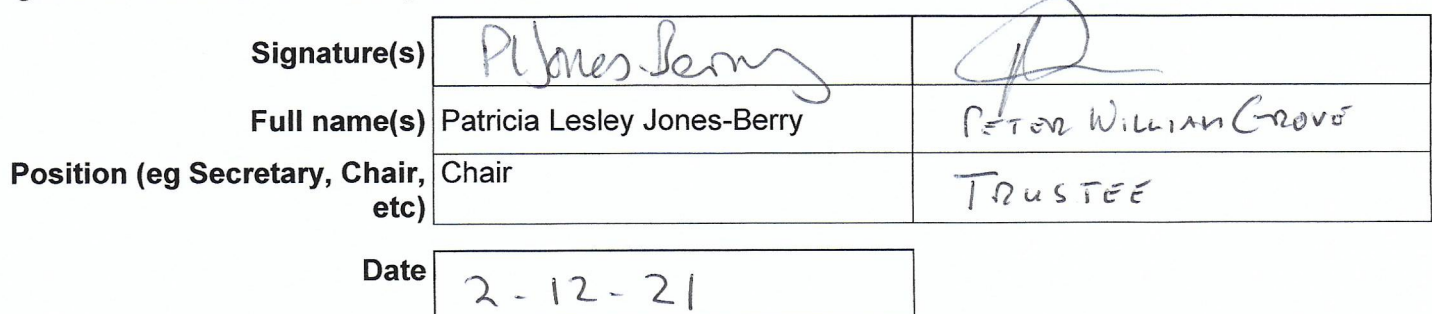 Signature(s) PLJones-Berry
Full name(s) Patricia Lesley Jones-Berry PETER WILLIAM GROVE
Position (eg Secretary, Chair, Chair TRUSTEE
etc)
Date 2-12-21